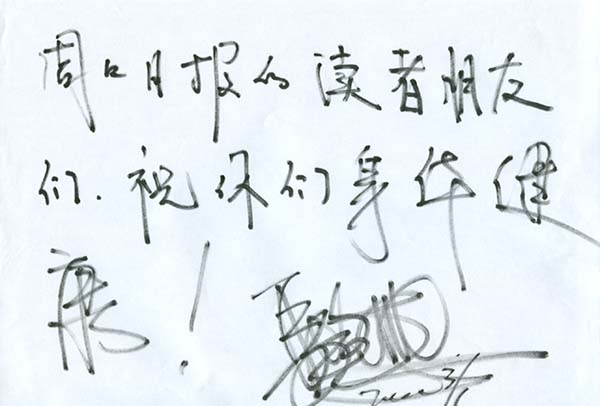 周口日报的读者朋友
们.祝你们身体健
康!